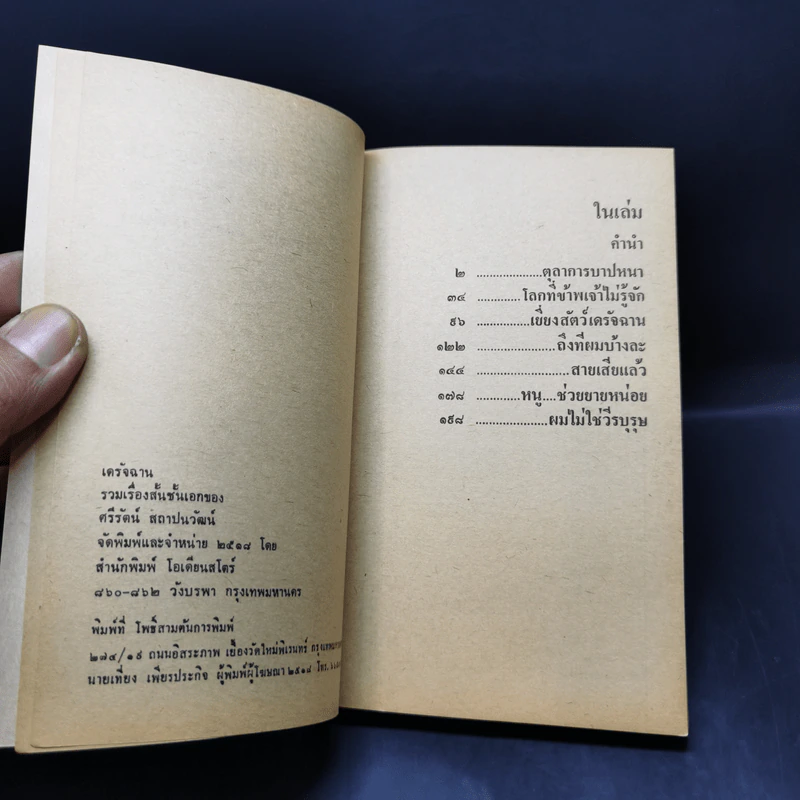 เดรัจฉาน
รวมเรื่องสั้นชั้นเอกของ
ศรีรัตน์ สถาปนวัฒน์
จัดพิมพ์และจำหน่าย ๒๕๑๘ โดย
สำนักพิมพ์ โอเดียนสโตร์
๘๖๐-๘๖๒ วังบรพา กรุงเทพมหานคร
พิมพ์ที่ โพธิ์สามต้นการพิมพ์
๒๘๔/๑๙ ถนนอิสระภาพ เยื้องวัดใหม่พิเรนทร์
นายเที่ยง เพียรประกิจ ผู้พิมพ์ผู้โฆษณา ๒๕๑๘ โทร.
ในเล่ม
คำนำ
๒ ....................ตุลาการบาปหนา
๓๔ .............โลกที่ข้าพเจ้าไม่รู้จัก
๙๖ ................เยี่ยงสัตว์เดรัจฉาน
๑๒๒ ........................ถึงทีผมบ้างละ
๑๔๔ ............................สายเสียแล้ว
๑๗๘ .............หนู....ช่วยยายหน่อย
๑๙๘ ......................ผมไม่ใช่วีรบุรุษ